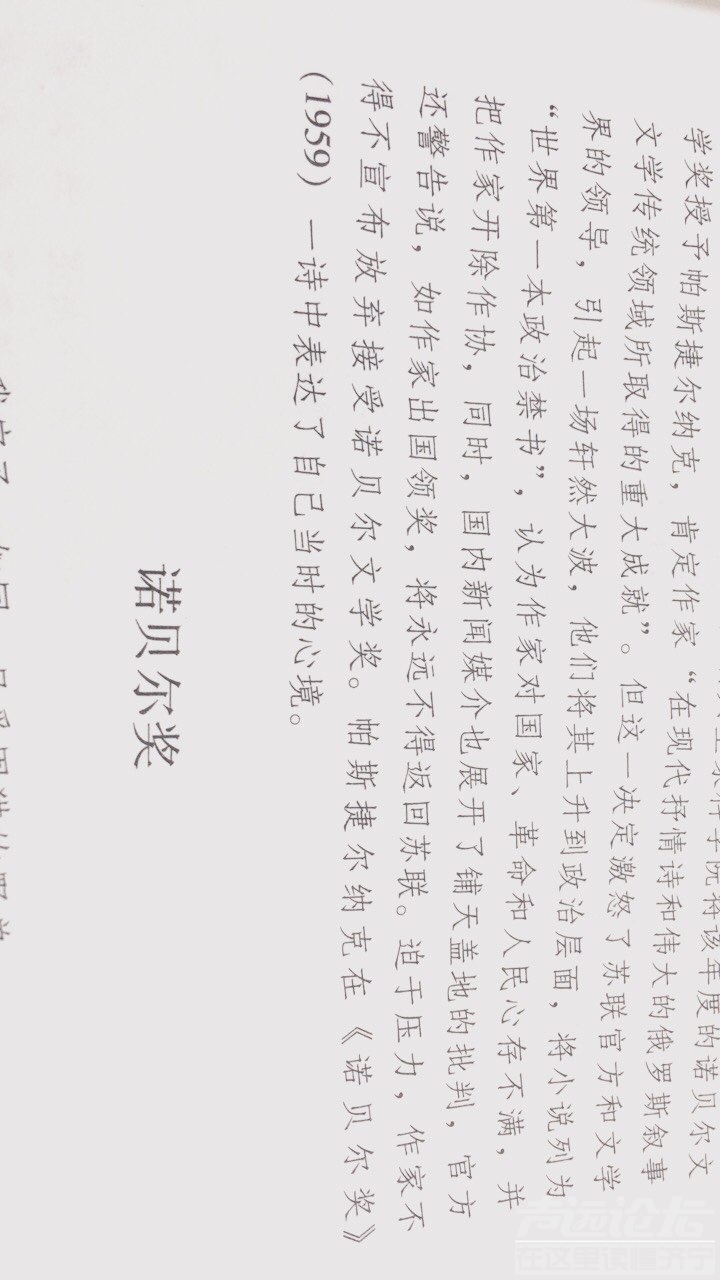 科学院将该年度的诺贝尔文
学奖授予帕斯捷尔纳克，肯定作家“在现代抒情诗和伟大的俄罗斯叙事
文学传统领域所取得的重大成就”。但这一决定激怒了苏联官方和文学
界的领导，引起一场轩然大波，他们将其上升到政治层面，将小说列为
“世界第一本政治禁书”，认为作家对国家、革命和人民心存不满，并
把作家开除作协，同时，国内新闻媒介也展开了铺天盖地的批判，官方
还警告说，如作家出国领奖，将永远不得返回苏联。迫于压力，作家不
得不宣布放弃接受诺贝尔文学奖。帕斯捷尔纳克在《诺贝尔奖》
(1959) 一诗中表达了自己当时的心境。
诺贝尔奖
声远论坛
在这里读懂济宁